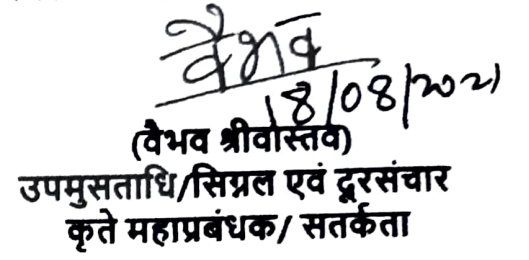 वैभव
18/08/2021
(वैभव श्रीवास्तव)
उपमुसताधि/सिग्नल एवं दूरसंचार
कृते महाप्रबंधक/ सतर्कता